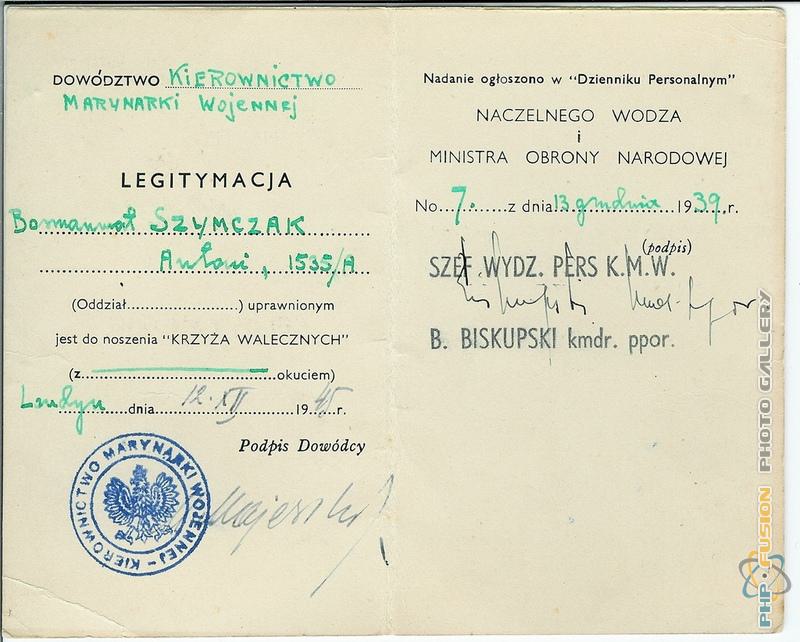 DOWÓDZTWO KIEROWNICTWO
MARYNARKI WOJENNEJ
LEGITYMACJA
Bosmanmat SZYMCZAK
Antoni, 1535/A
(Oddział....................) uprawnionym
jest do noszenia "KRZYŻA WALECZNYCH"
(z........................okuciem)
Londyn dnia 12. XII 1945 r.
Podpis Dowódcy
KIEROWNICTWO MARYNARKI WOJENNEJ
Nadanie ogłoszono w "Dzienniku Personalnym"
NACZELNEGO WODZA
i
MINISTRA OBRONY NARODOWEJ
No 7. z dnia 13 grudnia 1939, r.
(podpis)
SZEF WYDZ. PERS K.M.W.
B. BISKUPSKI kmdr. ppor.
PHP-FUSION PHOTO GALLERY